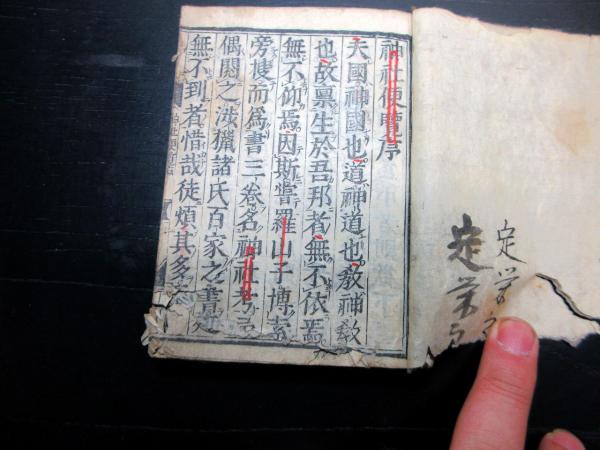 神社便覽序
夫國神國也道神道也敎神敎
也故禀生於吾邦者無不依焉
無不仰焉因斯嘗羅山子博索
旁捜而爲書三卷名神社考予
偶閲之渉獵諸氏百家之書
無不到者惜哉徒煩其多
定
定